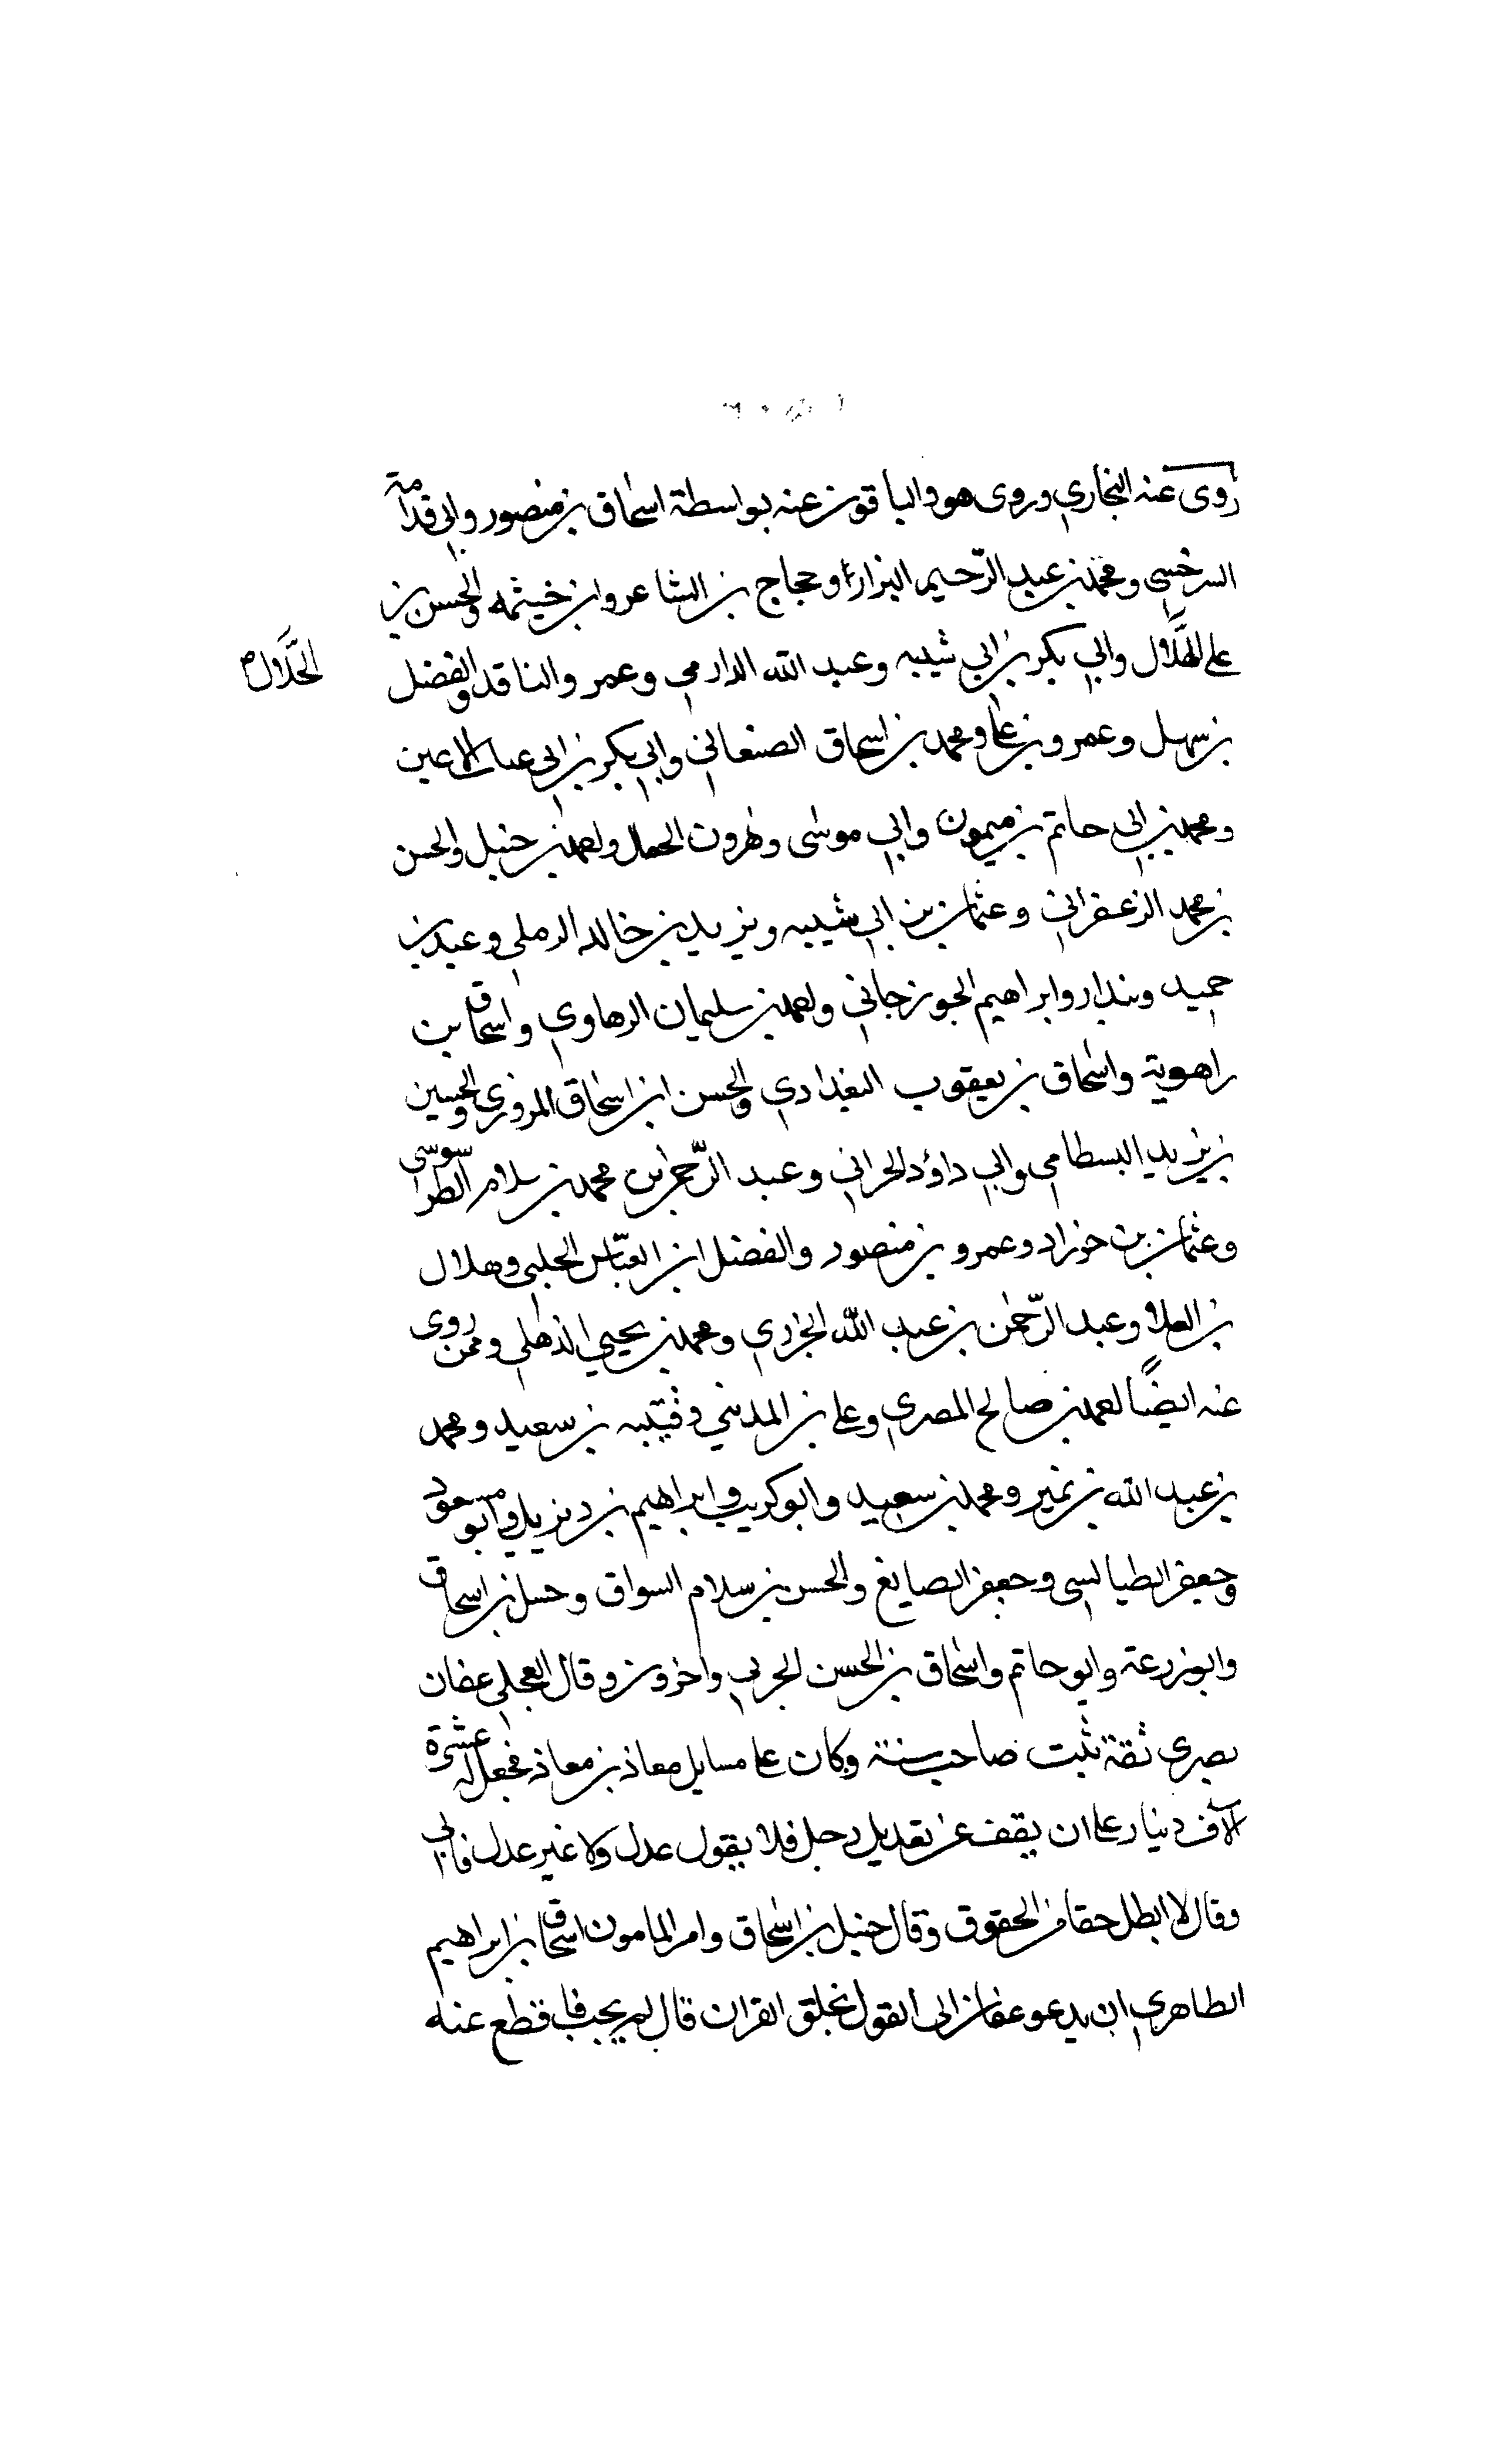 روى عنه البخاري وروى هو والباقون عنه بواسطة اسحاق بن منصور وابي قدامة
السرخسي ومحمد بن عبد الرحيم البزار وحجاج بن الشاعر وابن خيثمه والحسن بن
علي الهلال وابي بكر بن ابي شيبه وعبد الله الدارمي وعمرو الناقد والفضل
الخلال
بن سهل وعمرو بن علي ومحمد بن اسحاق الصنعاني وابي بكر بن ابي عتاب الاعين
ومحمد بن ابي حاتم بن ميمون وابي موسى وهرون الحمال واحمد بن حنبل والحسن
بن محمد الزعفراني وعثمان بن ابي شيبه ويزيد بن خالد الرملي وعبد بن
حميد وبندار وابراهيم الجوزجاني واحمد بن سليمان الرهاوي واسحاق بن
راهوية واسحاق بن يعقوب البغدادي والحسن ابن اسحاق المروزي والحسين
بن يزيد البسطامي وابي داؤد الحراني وعبد الرحمن بن محمد بن سلام الطرسوسي
وعثمان بن خرزاد وعمرو بن منصور والفضل ابن العباس الحلبي وهلال
بن العلا وعبد الرحمن بن عبد الله الجزري ومحمد بن يحيي الذهلي وممن روى
عنه ايضًا احمد بن صالح المصري وعلي بن المديني وقتيبه بن سعيد ومحمد
بن عبد الله بن نمير ومحمد بن سعيد وابو كريب وابراهيم بن ديزيل وابو مسعود
وجعفر الطيالسي وجعفر الصايغ والحسن بن سلام السواق وحنبل بن اسحاق
وابو زرعة وابو حاتم واسحاق بن الحسن الحربي واخرون وقال العجلي عفان
بصري ثقة ثبت صاحب سنة وكان على مسايل معاذ بن معاذ فجعل له عشرة
آلاف دينار على ان يقف عن تعديل رجل فلا يقول عدل ولا غير عدل فابي
وقال لا ابطل حقا من الحقوق وقال حنبل بن اسحاق وامر المامون اسحاق بن ابراهيم
الطاهري ان يدعو عفان الى القول بخلق القران قال لم يجب فاقطع عنه